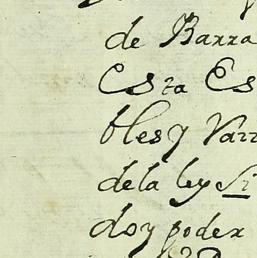 de Barra
Esta Es
bles y Varr
dela ley Si
doy poder